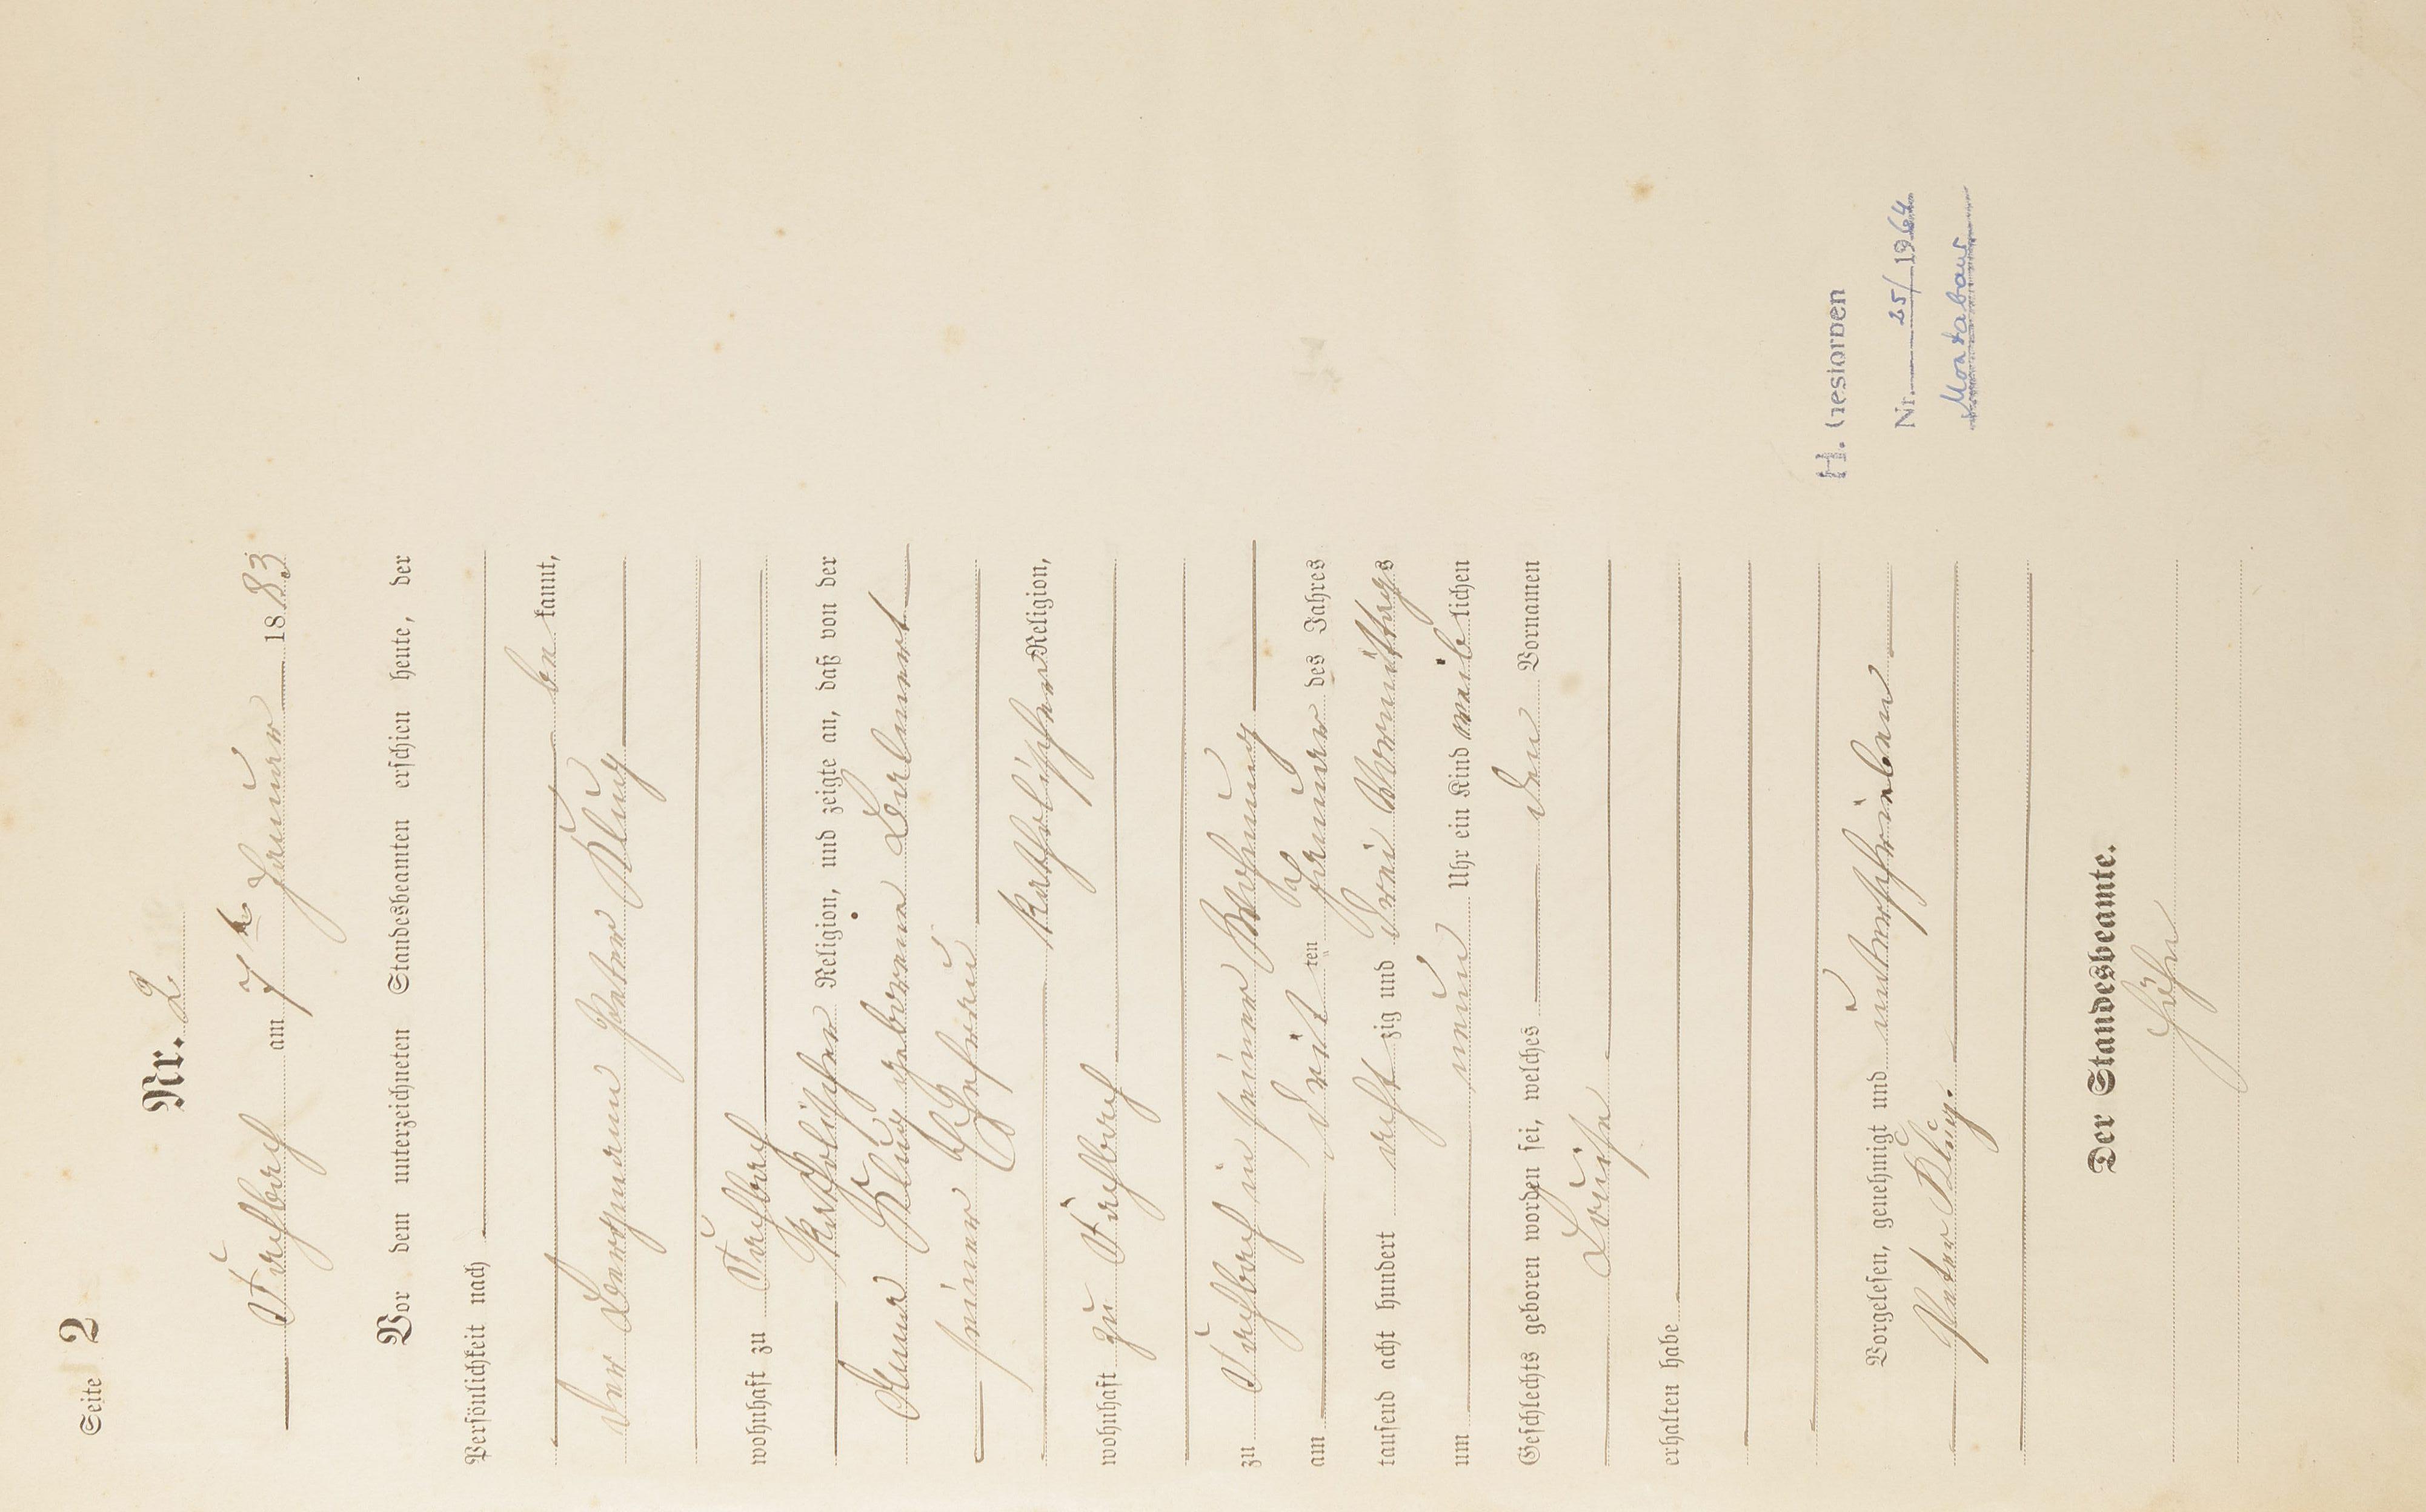 Seite 2
Nr. 2
am 7ten Januar 1883
Vor dem unterzeichneten Standesbeamten erschien heute, der
Persönlichkeit nach
bekannt,
der Bergmann Peter Klug
wohnhaft zu
katholischer Religion, und zeigte an, daß von der
Anna Klug geborene
seiner Ehefrau
katholischer Religion,
wohnhaft zu
zu in seiner Wohnung
am dritten Januar des Jahres
tausend acht hundert achtzig und drei Vormittags
um neun Uhr ein Kind weiblichen
Geschlechts geboren worden sei, welches den Vornamen
Louise
erhalten habe
Vorgelesen, genehmigt und unterschrieben
Peter Klug.
Der Standesbeamte.
H. Gestorben
Nr. 25/1964
Montabaur